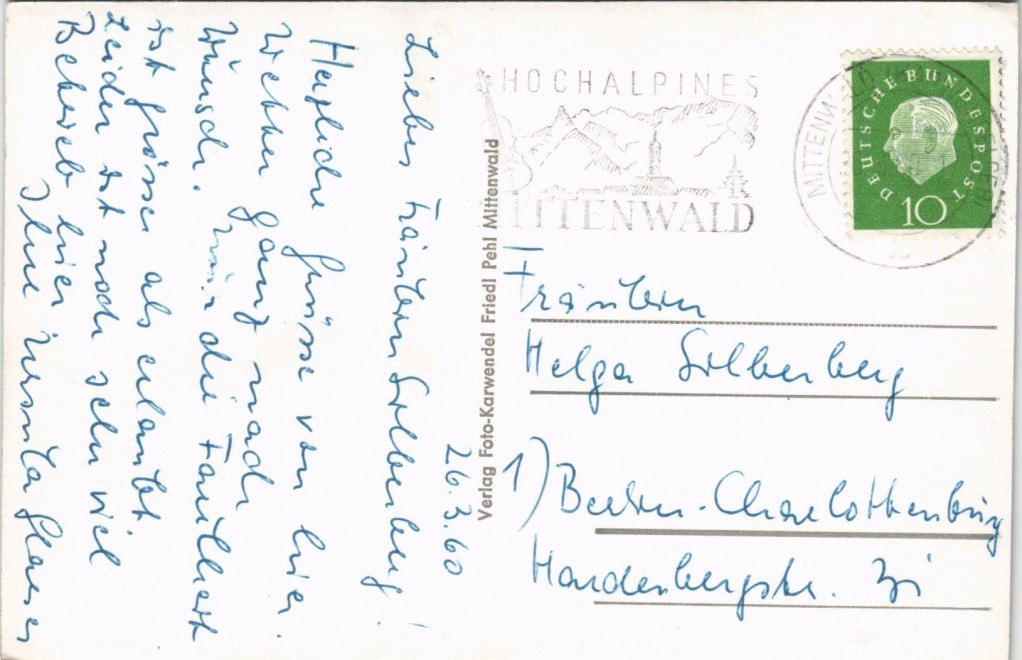 26.3.60
Liebes Fräulein Silberberg!
Herzliche Grüsse von hier.
Wetter ganz nach
Wunsch. Nur die Faulheit
ist grösser als erlaubt.
Leider ist noch sehr viel
Betrieb hier
Ihre Ursula
Verlag Foto-Karwendel Friedl Pehl Mittenwald
HOCHALPINES
MITTENWALD
MITTENWALD
DEUTSCHE BUNDESPOST
10
Fräulein
Helga Silberberg
1) Berlin-Charlottenburg
Hardenbergstr.